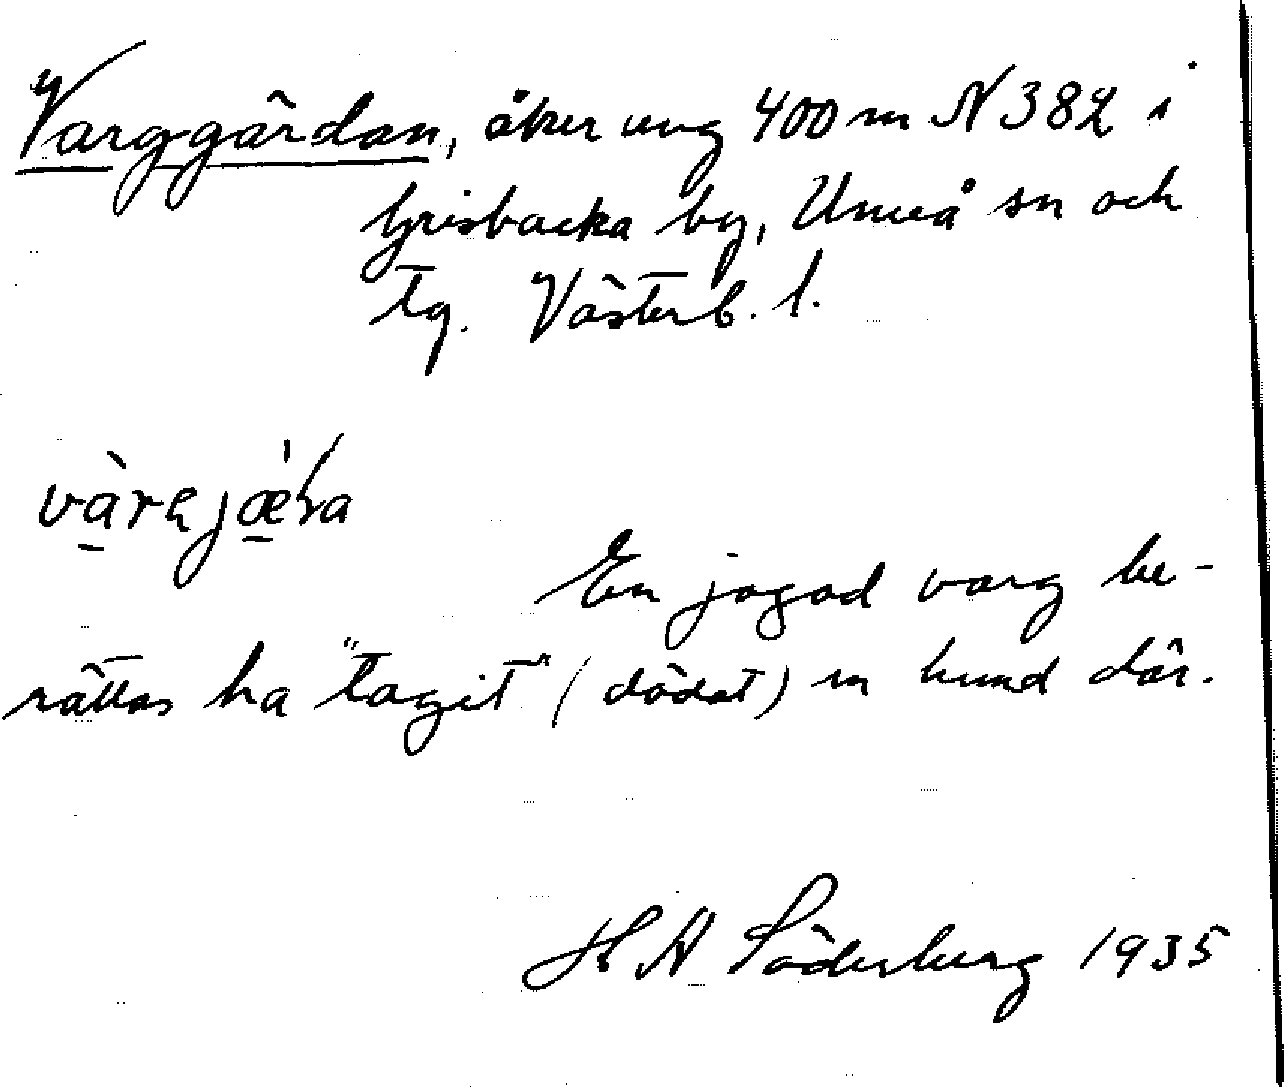 Varggärdan, åker ung 400 m N 382 i
Grisbacka by, Umeå sn och
tg. Västerb. l.
En jagad varg be-
rättas ha "tagit" (dödat) en hund där.
H A Söderberg 1935